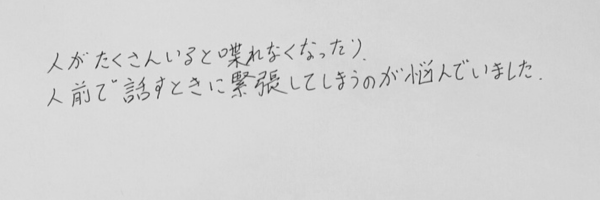 人がたくさんいると喋れなくなったり、
人前で話すときに緊張してしまうのが悩んでいました.